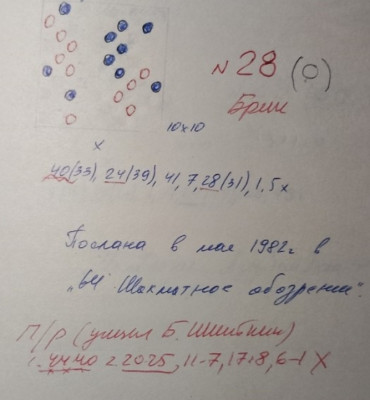 № 28 (О)
Брин
10х10
х
40(33), 24(39), 41, 7, 28(31), 1. 5х
Послана в мае 1982г. в
„64 Шахматное обозрение".
П/р (учшил Б. Шкиткин)
1. 4440 2. 2025, 11-7, 17+8, 6-1 X